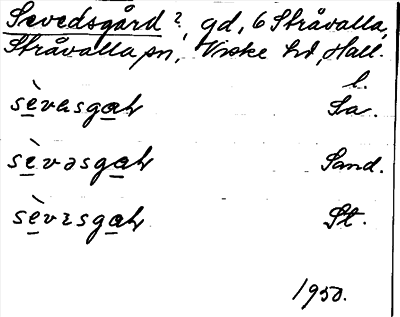 Sevedsgård?, gd, 6 Stråvalla,
Stråvalla sn, Viske hd, Hall.
l.
sèvasgaɫ Sa.
sèvəsgaɫ Sand.
sèvɪsgaɫ St.
1950.